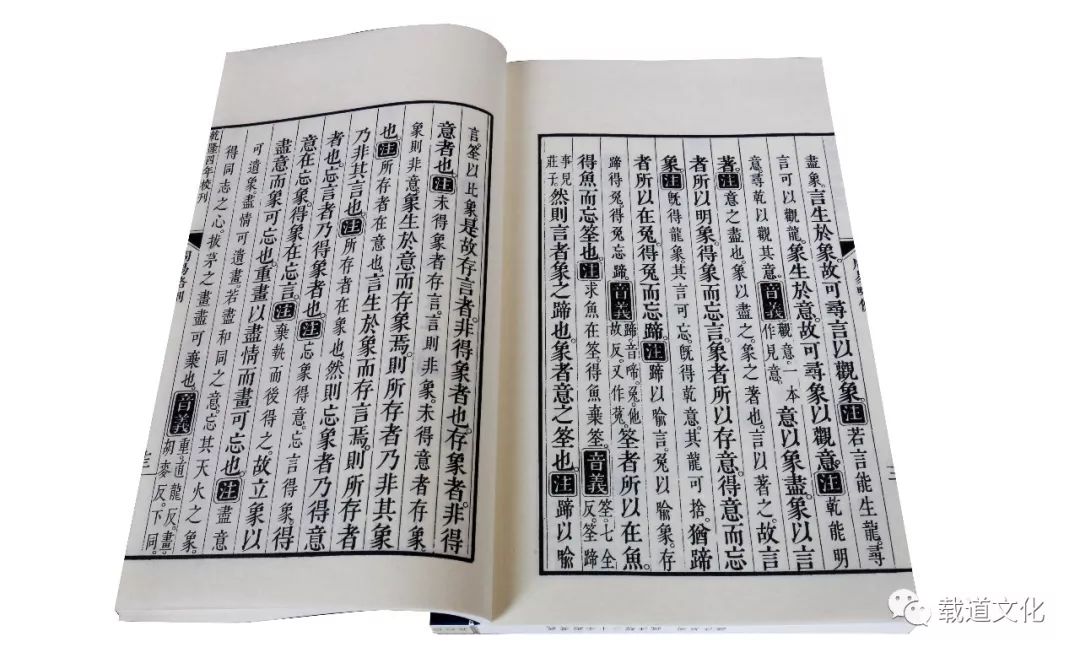 盡象。言生於象。故可尋言以觀象。注若言能生龍。尋
言可以觀龍。象生於意。故可尋象以觀意。注乾能明
意。尋乾以觀其意。音義觀意。一本作見意。意以象盡。象以言
著。注意之盡也。象以盡之。象之著也。言以著之。故言
者所以明象。得象而忘言。象者所以存意。得意而忘
象。注旣得龍象其言可忘。旣得乾意。其龍可捨。猶蹄
者所以在兔。得兔而忘蹄。注蹄以喻言。兔以喻象。存
蹄得兔。得兔忘蹄。音義蹄音啼。兔。他故反。又作菟。筌者所以在魚。
得魚而忘筌也。注求魚在筌。得魚棄筌。音義筌。七全反。筌蹄
事見莊子。然則言者象之蹄也。象者意之筌也。注蹄以喻
言。筌以比象。是故存言者。非得象者也。存象者。非得
意者也。注未得象者存言。言則非象。未得意者存象。
象則非意。象生於意而存象焉。則所存者乃非其象
也。注所存者在意也。言生於象而存言焉。則所存者
乃非其言也。注所存者在象也。然則忘象者乃得意
者也。忘言者乃得象者也。注忘象得意。忘言得象。得
意在忘象。得象在忘言。注棄執而後得之。故立象以
盡意而象可忘也。重畫以盡情而畫可忘也。注盡意
可遺象。盡情可遺畫。若盡和同之意。忘其天火之象。
得同志之心。拔茅之畫盡可棄也。音義重。直龍反。畫。胡麥反。下同。
乾隆四年校刊
三
载道文化